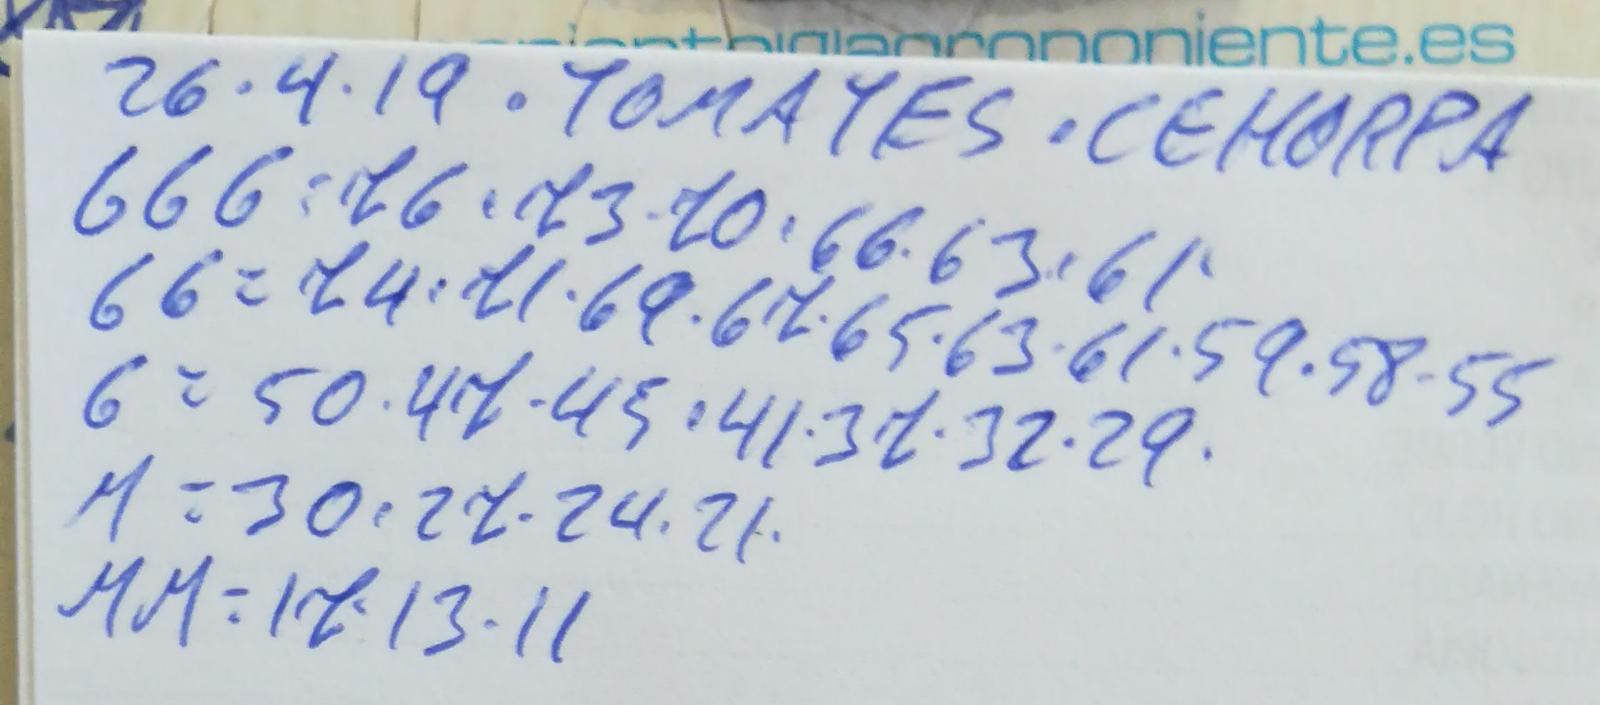 ponienteigiagroponiente.es
26.4.19 . TOMATES . CEHORPA
666=76.73.70.66.63.61.
66=74.71.69.67.65.63.61.59.58.55
6=50.47.45.41.37.32.29.
M=30.27.24.21.
MM=17.13.11